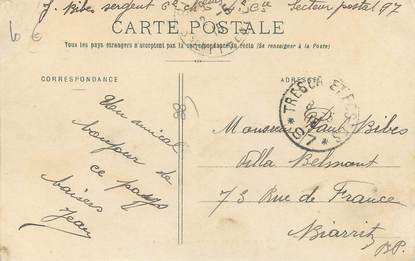 J. Bibes sergent 6e Cie Secteur postal 97
CARTE POSTALE
Tous les pays étrangers n'acceptent pas la correspondance au recto (Se renseigner à la Poste)
CORRESPONDANCE
ADRESSE
Un amical
bonjour de
ce pays
baisers
Jean
TRESOR ET POSTES
* 97 *
Monsieur Paul Bibes
Villa Belmont
73 Rue de France
Biarritz
B.P.
6 €